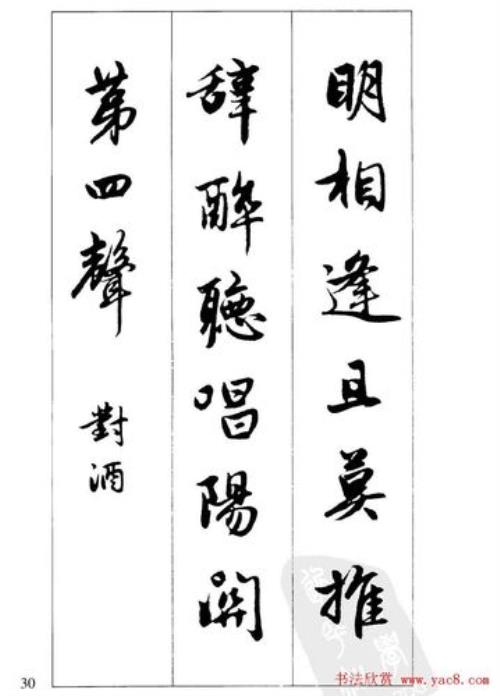 明相逢且莫推
辞醉聽唱陽関
第四聲
對酒
30
书法欣赏 www.yac8.com